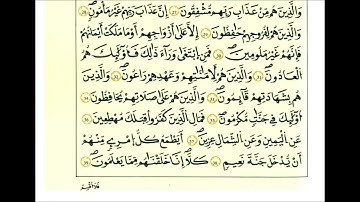 وَالَّذِينَ هُم مِّنْ عَذَابِ رَبِّهِم مُّشْفِقُونَ ۝٢٧ إِنَّ عَذَابَ رَبِّهِمْ غَيْرُ مَأْمُونٍ ۝٢٨
وَالَّذِينَ هُمْ لِفُرُوجِهِمْ حَافِظُونَ ۝٢٩ إِلَّا عَلَىٰ أَزْوَاجِهِمْ أَوْ مَا مَلَكَتْ أَيْمَانُهُمْ
فَإِنَّهُمْ غَيْرُ مَلُومِينَ ۝٣٠ فَمَنِ ابْتَغَىٰ وَرَاءَ ذَٰلِكَ فَأُولَٰئِكَ هُمُ
الْعَادُونَ ۝٣١ وَالَّذِينَ هُمْ لِأَمَانَاتِهِمْ وَعَهْدِهِمْ رَاعُونَ ۝٣٢ وَالَّذِينَ
هُم بِشَهَادَاتِهِمْ قَائِمُونَ ۝٣٣ وَالَّذِينَ هُمْ عَلَىٰ صَلَاتِهِمْ يُحَافِظُونَ ۝٣٤
أُولَٰئِكَ فِي جَنَّاتٍ مُّكْرَمُونَ ۝٣٥ فَمَالِ الَّذِينَ كَفَرُوا قِبَلَكَ مُهْطِعِينَ ۝٣٦
عَنِ الْيَمِينِ وَعَنِ الشِّمَالِ عِزِينَ ۝٣٧ أَيَطْمَعُ كُلُّ امْرِئٍ مِّنْهُمْ
أَن يُدْخَلَ جَنَّةَ نَعِيمٍ ۝٣٨ كَلَّا إِنَّا خَلَقْنَاهُم مِّمَّا يَعْلَمُونَ ۝٣٩
فَلَا أُقْسِمُ